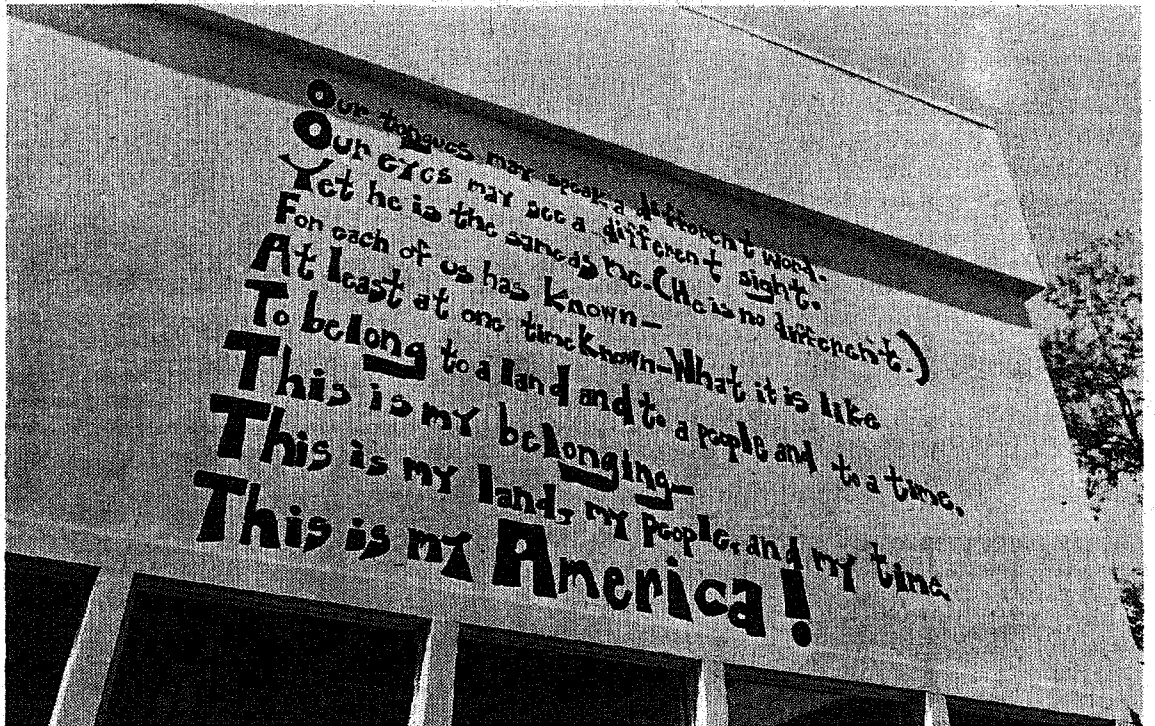 Our tongues may speak a different word.
Our eyes may see a different sight.
Yet he is the same as me. (He is no different.)
For each of us has known—
At least at one time known—What it is like
To belong to a land and to a people and to a time.
This is my belonging—
This is my land, my people, and my time.
This is my America!